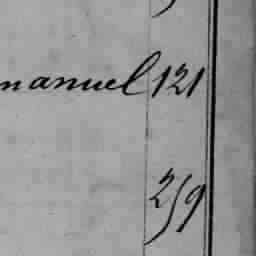 manuel 121
259